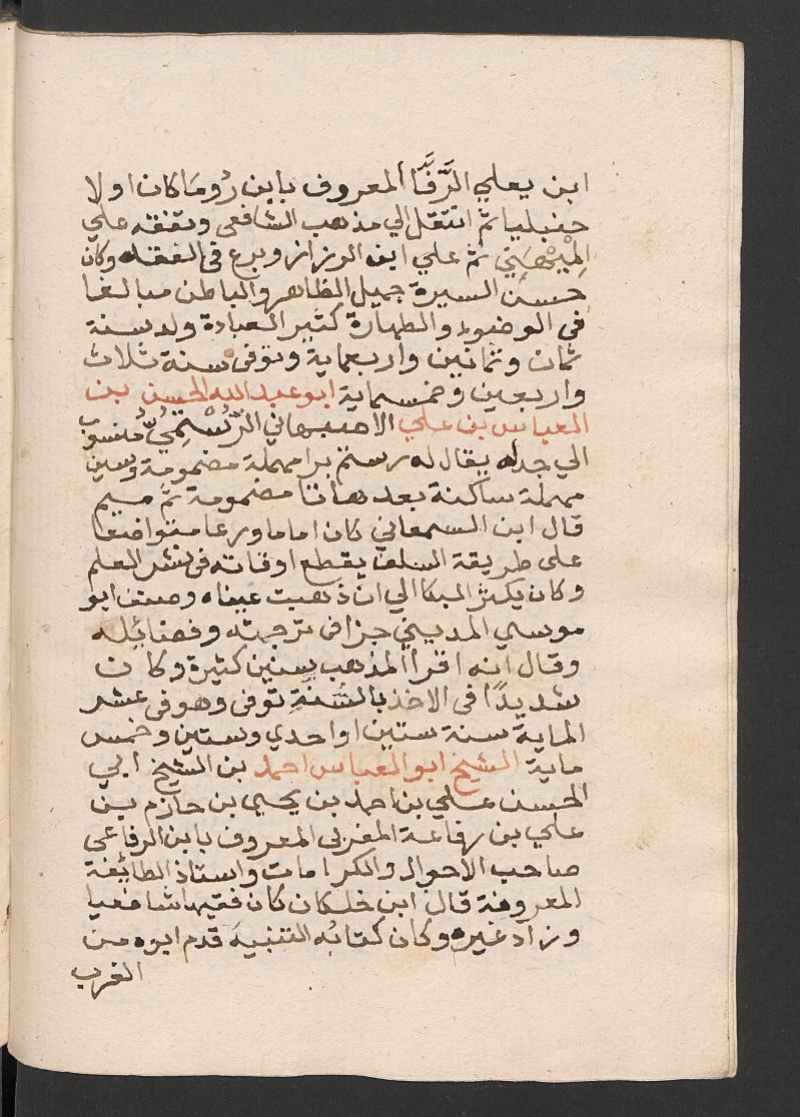 ابن يعلي الرَّفَّا المعروف بابن رُومَا كان اولا
حنبليا ثم انتقل الي مذهب الشافعي وتفقه علي
المِيْهَنِي ثم علي ابن الرزاز وبرع في الفقه وكان
حسن السيرة جميل الظاهر والباطن مبالغا
في الوضوء والطهارة كثير العبادة ولد سنة
ثمان وثمانين واربعماية وتوفي سنة ثلاث
واربعين وخمسماية ابو عبد الله الحسن بن
العباس بن علي الاصبهاني الرُّسْتُمِيُّ منسوب
الي جد له يقال له رستم برا مهملة مضمومة وسين
مهملة ساكنة بعدها تا مضمومة ثم ميم
قال ابن السمعاني كان اماما ورعا متواضعا
علي طريقة السلف يقطع اوقاته في نشر العلم
وكان يكثر البكا الي ان ذهبت عيناه وصنف ابو
موسي المديني جزا في ترجمته وفضائله
وقال انه اقرا المذهب سنين كثيرة وكان
شديدًا في الاخذ بالسُّنَّةِ توفي وهو في عشر
الماية سنة ستين او احدي وستين وخمس
ماية الشيخ ابو العباس احمد بن الشيخ ابي
الحسن علي بن احمد بن يحيي بن حازم بن
علي بن رفاعة المغربي المعروف بابن الرفاعي
صاحب الاحوال والكرامات واستاذ الطائفة
المعروفة قال ابن خلكان كان فقيها شافعيا
وزاد غيره وكان كتابُه التنبيهَ قدم ابوه من
الغرب